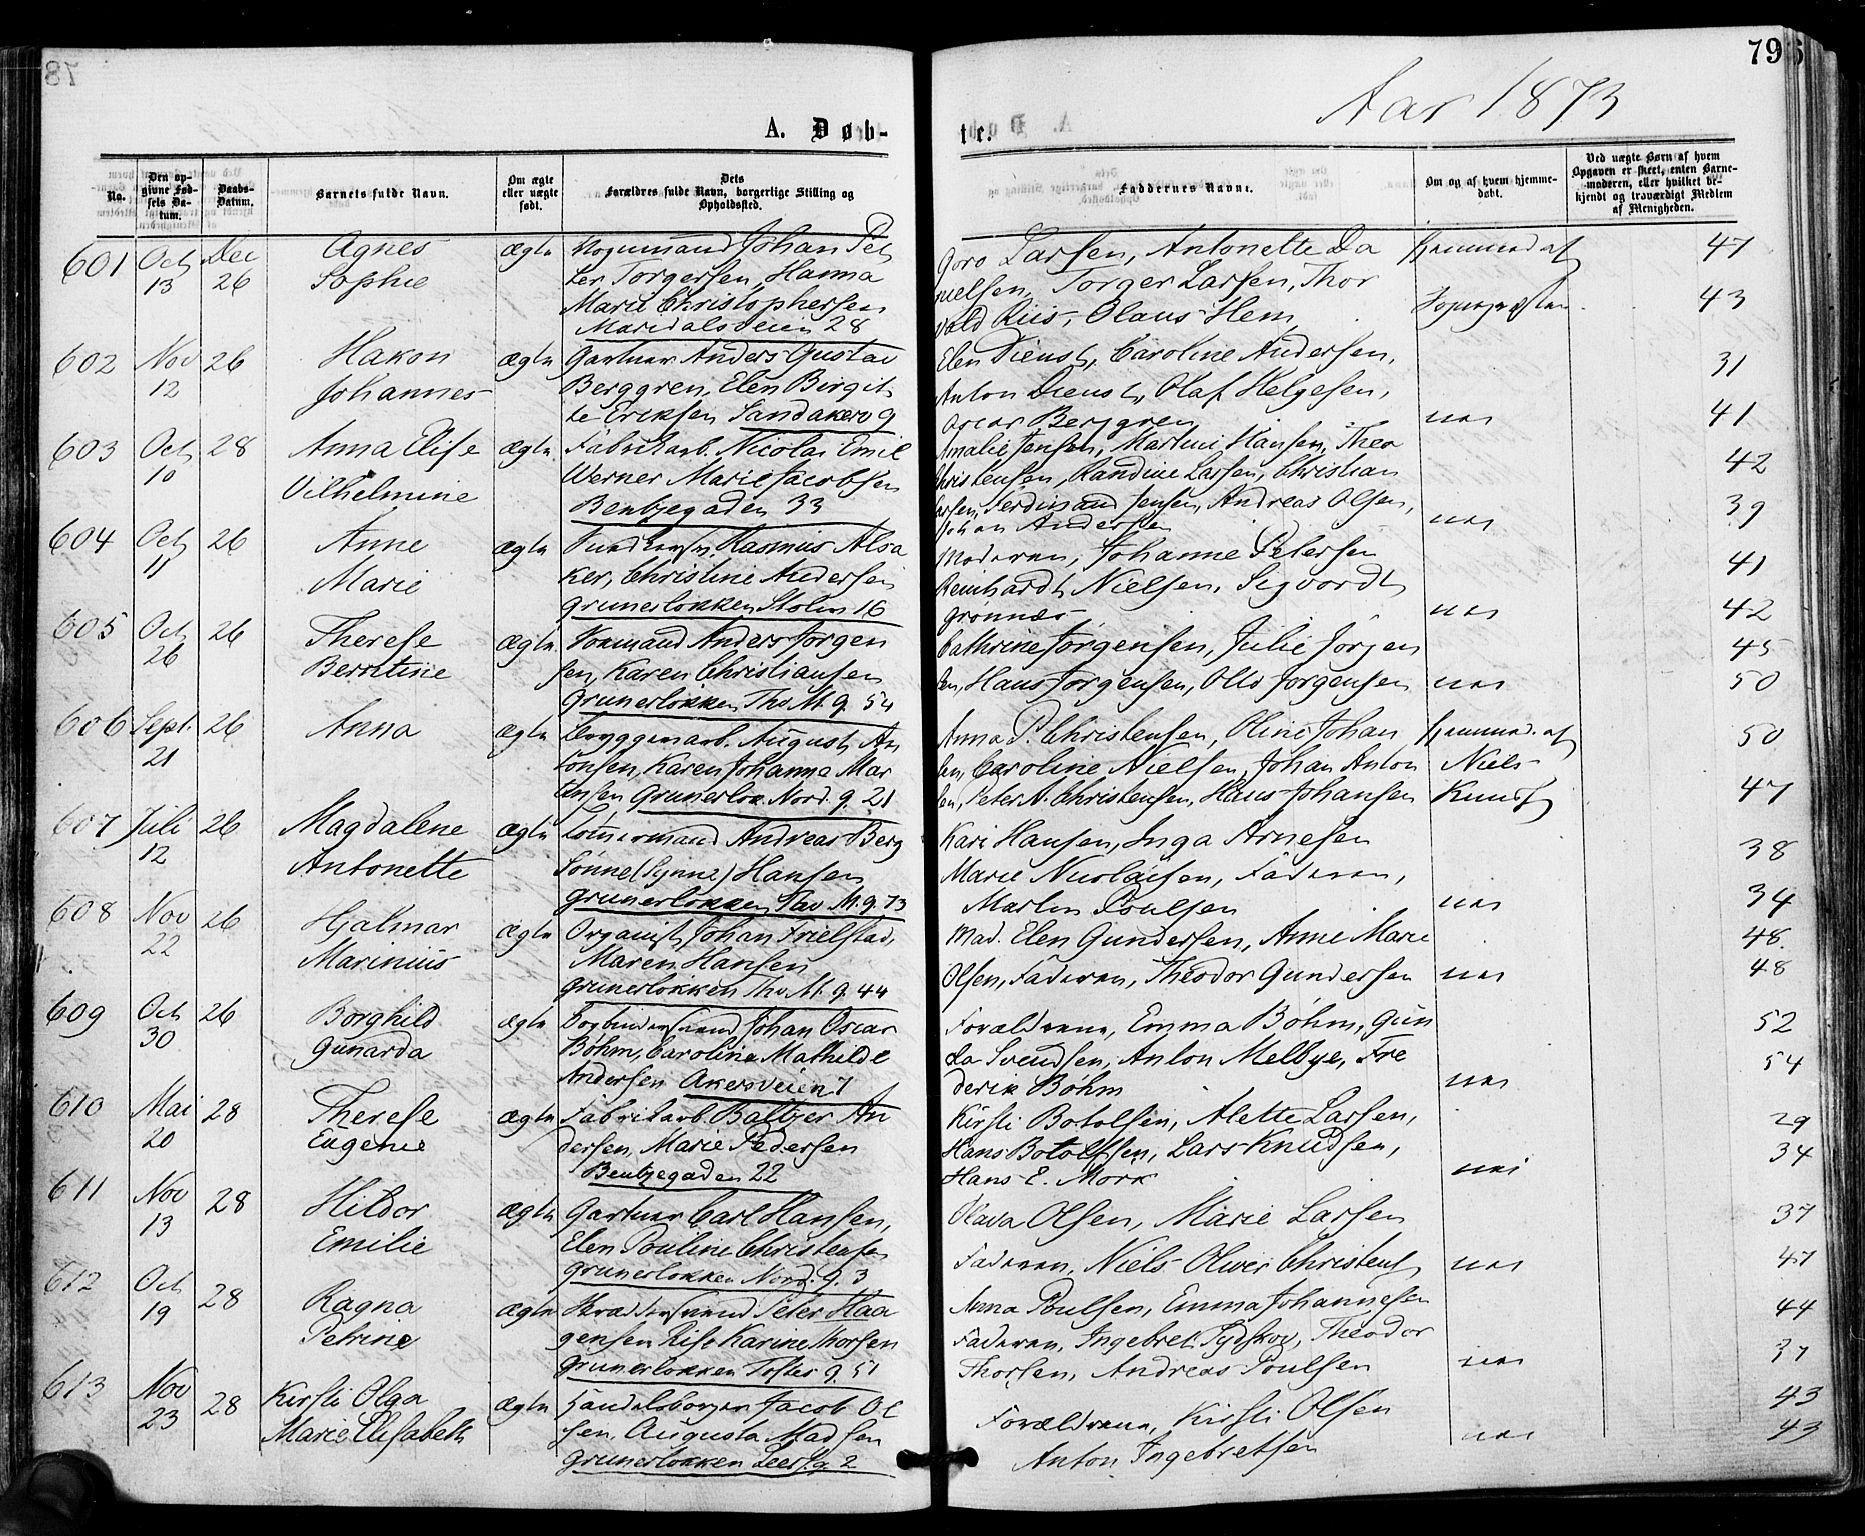 79
Aar 1873
A. Døb-
te.
No.
Den op-
givne Fød-
sels Da-
tum.
Daabs-
Datum.
Barnets fulde Navn.
Om ægte
eller uægte
født.
Dets
Forældres fulde Navn, borgerlige Stilling og
Opholdssted.
Faddernes Navne.
Om og af hvem hjemme-
døbt.
Ved uægte Børn af hvem
Opgaven er skeet, enten Barne-
moderen, eller hvilket be-
kjendt og troværdigt Medlem
af Menigheden.
601 Oct 13 Dec 26 Agnes Sophie ægte
Vognmand Johan Pet
ter Torgersen, Hanna
Marie Christophersen
Maridalsveien 28
Goro Larsen, Antonette Da
nielsen, Torger Larsen, Thor
vald Riis, Olaus Hem
47
43
602 Nov 12 26 Hakon Johannes ægte
Gartner Anders Gustav
Berggren, Elen Birgit
te Eriksen Sandakerv 9
Elen Dienst, Caroline Andersen,
Anton Dienst, Olaf Helgesen,
Oscar Berggren nei
31
41
603 Oct 10 28 Anna Elise Vilhelmine ægte
Fabrikarb. Nicolai Emil
Werner Marie Jacobsen
Bentzegaden 33
Amalie Jensen, Martine Hansen, Thea
Christensen, Randine Larsen, Christian
Larsen, Ferdinand Jensen, Andreas Olsen,
Johan Andersen nei
42
39
604 Oct 11 26 Anne Marie ægte
Rasmus Alsa
ker, Christine Andersen
Grunerløkken Stolm 16
Moderen, Johanne Petersen
Reinhardt Nielsen, Sigvardt
Grønnæs nei
41
42
605 Oct 26 26 Therese Berntine ægte
Formand Anders Jørgen
sen, Karen Christiansen
Grunerløkken Tho M. g. 54
Cathrine Jørgensen, Julie Jørgen
sen, Hans Jørgensen, Olls Jørgensen nei
45
50
606 Sept. 21 26 Anna ægte
Bryggeriarb. August An
tonsen, Karen Johanna Mar
tinsen Grunerløk. Nord. g. 21
Anna P. Christensen, Oline Johan
sen, Caroline Nielsen, Johan Anton
sen, Peter A. Christensen, Hans Johansen
hjemmed. af
Niels
Knuds
50
47
607 Juli 12 26 Magdalene Antonette ægte
Tømmermand Andreas Berg
Sønne (Synne) Hansen
Grunerløkken Tho M. g. 73
Kari Hansen, Inga Arnesen
Marie Nicolaisen, Faderen,
Martin Poulsen nei
38
34
608 Nov 22 26 Hjalmar Marinius ægte
Organist Johan Frielstad,
Maren Hansen
Grunerløkken Tho M. g. 44
Mad. Elen Gundersen, Anne Marie
Olsen, Faderen, Theodor Gundersen nei
48
48
609 Oct 30 26 Borghild Gunarda ægte
Bogbindersvend Johan Oscar
Bøhm, Caroline Mathilde
Andersen Akersveien 7
Forældrene, Emma Bøhm, Gun
da Svendsen, Anton Melbye, Fre
derik Bøhm nei
52
54
610 Mai 20 28 Therese Eugenie ægte
Fabrikarb. Baltzer An
dersen, Marie Pedersen
Bentzegaden 22
Kirsti Botolfsen, Alette Larsen,
Hans Botolfsen, Lars Knudsen,
Hans E. Mørk nei
29
34
611 Nov 13 28 Hildor Emilie ægte
Gartner Carl Hansen,
Elen Pouline Christensen
Grunerløkken Nord. g. 3
Olava Olsen, Marie Larsen
Faderen, Niels Oliver Christens nei
37
47
612 Oct 19 28 Ragna Petrine ægte
Skræddersvend Peter Haa
gensen Lise Karine Thorsen
Grunerløkken Tofteg. 51
Anna Poulsen, Emma Johannesen
Faderen, Ingebret Tydskov, Theodor
Thorsen, Andreas Poulsen nei
44
37
613 Nov 23 28 Kirsti Olga Marie Elisabeth ægte
Handelsborger Jacob Ol
sen, Augusta Madsen
Grunerløkken Seersg. 2
Forældrene, Kirsti Olsen
Anton Ingebretsen nei
43
43